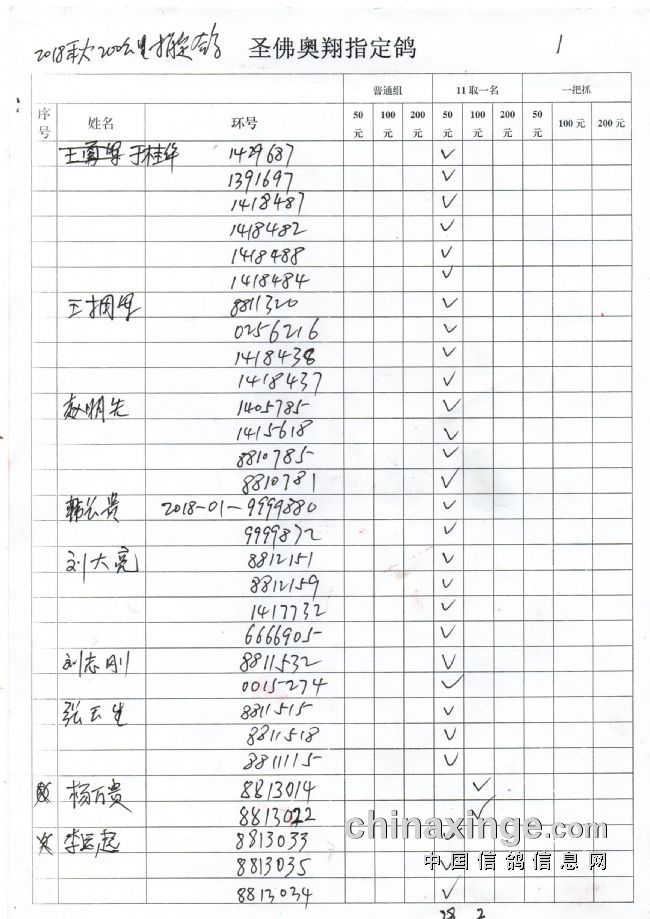 2018秋200公里指定鸽 圣佛奥翔指定鸽 1
序号 姓名 环号 普通组 11取一名 一把抓
50元 100元 200元 50元 100元 200元 50元 100元 200元
于桂华 1429687 ✓
1391697 ✓
1418487 ✓
1418482 ✓
1418488 ✓
1418484 ✓
8811320 ✓
0256216 ✓
1418438 ✓
1418437 ✓
赵明先 1405785 ✓
1415618 ✓
8810785 ✓
8810781 ✓
韩长贵 2018-01-9999880 ✓
9999872 ✓
刘大亮 8812151 ✓
8812159 ✓
1417732 ✓
6666905 ✓
刘志刚 8811532 ✓
0015274 ✓
张玉生 8811515 ✓
8811518 ✓
8811115 ✓
杨万贵 8813014 ✓
8813022 ✓
李运起 8813033 ✓
8813035 ✓
8813034 ✓
28 2
chinaxinge.com
中国信鸽信息网